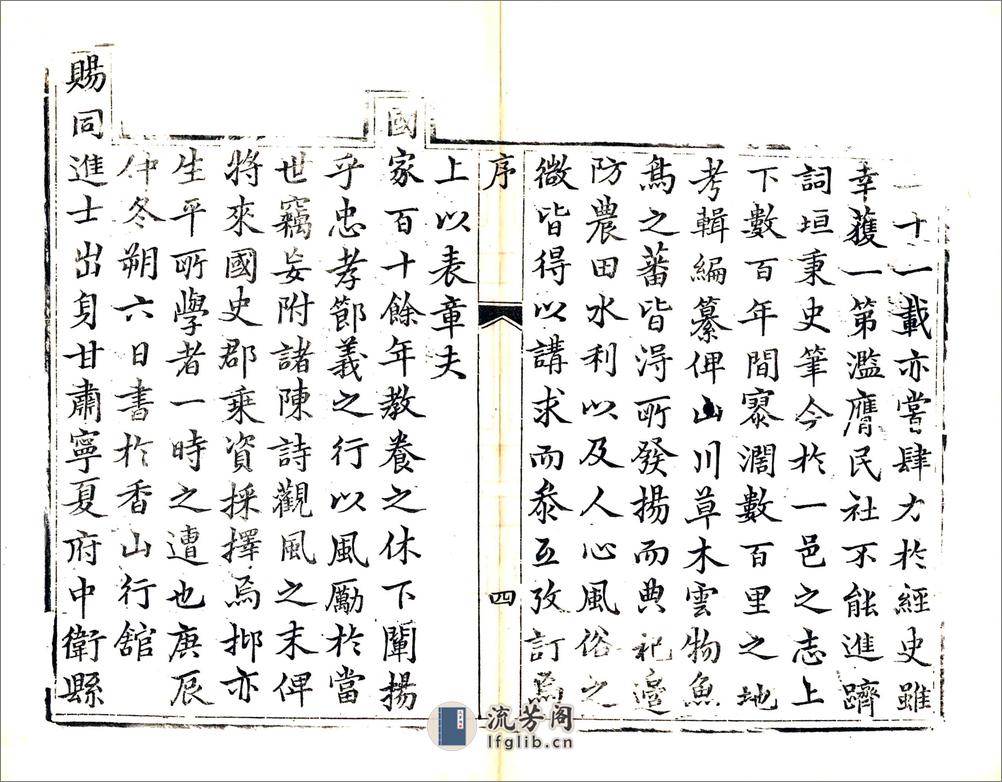 二十一載亦嘗肆力於經史雖
幸獲一第濫膺民社不能進躋
詞垣秉史筆今於一邑之志上
下數百年間寥濶數百里之地
考輯編纂俾山川草木雲物魚
鳥之蕃皆得所發揚而典祀邊
防農田水利以及人心風俗之
微皆得以講求而叅互攷訂焉
序 四
上以表章夫
國家百十餘年教養之休下闡揚
乎忠孝節義之行以風勵於當
世竊妄附諸陳詩觀風之末俾
將來國史郡乘資採擇焉抑亦
生平所學者一時之遭也庚辰
仲冬朔六日書於香山行舘
賜同進士出身甘肅寧夏府中衛縣
流芳阁
lfglib.cn